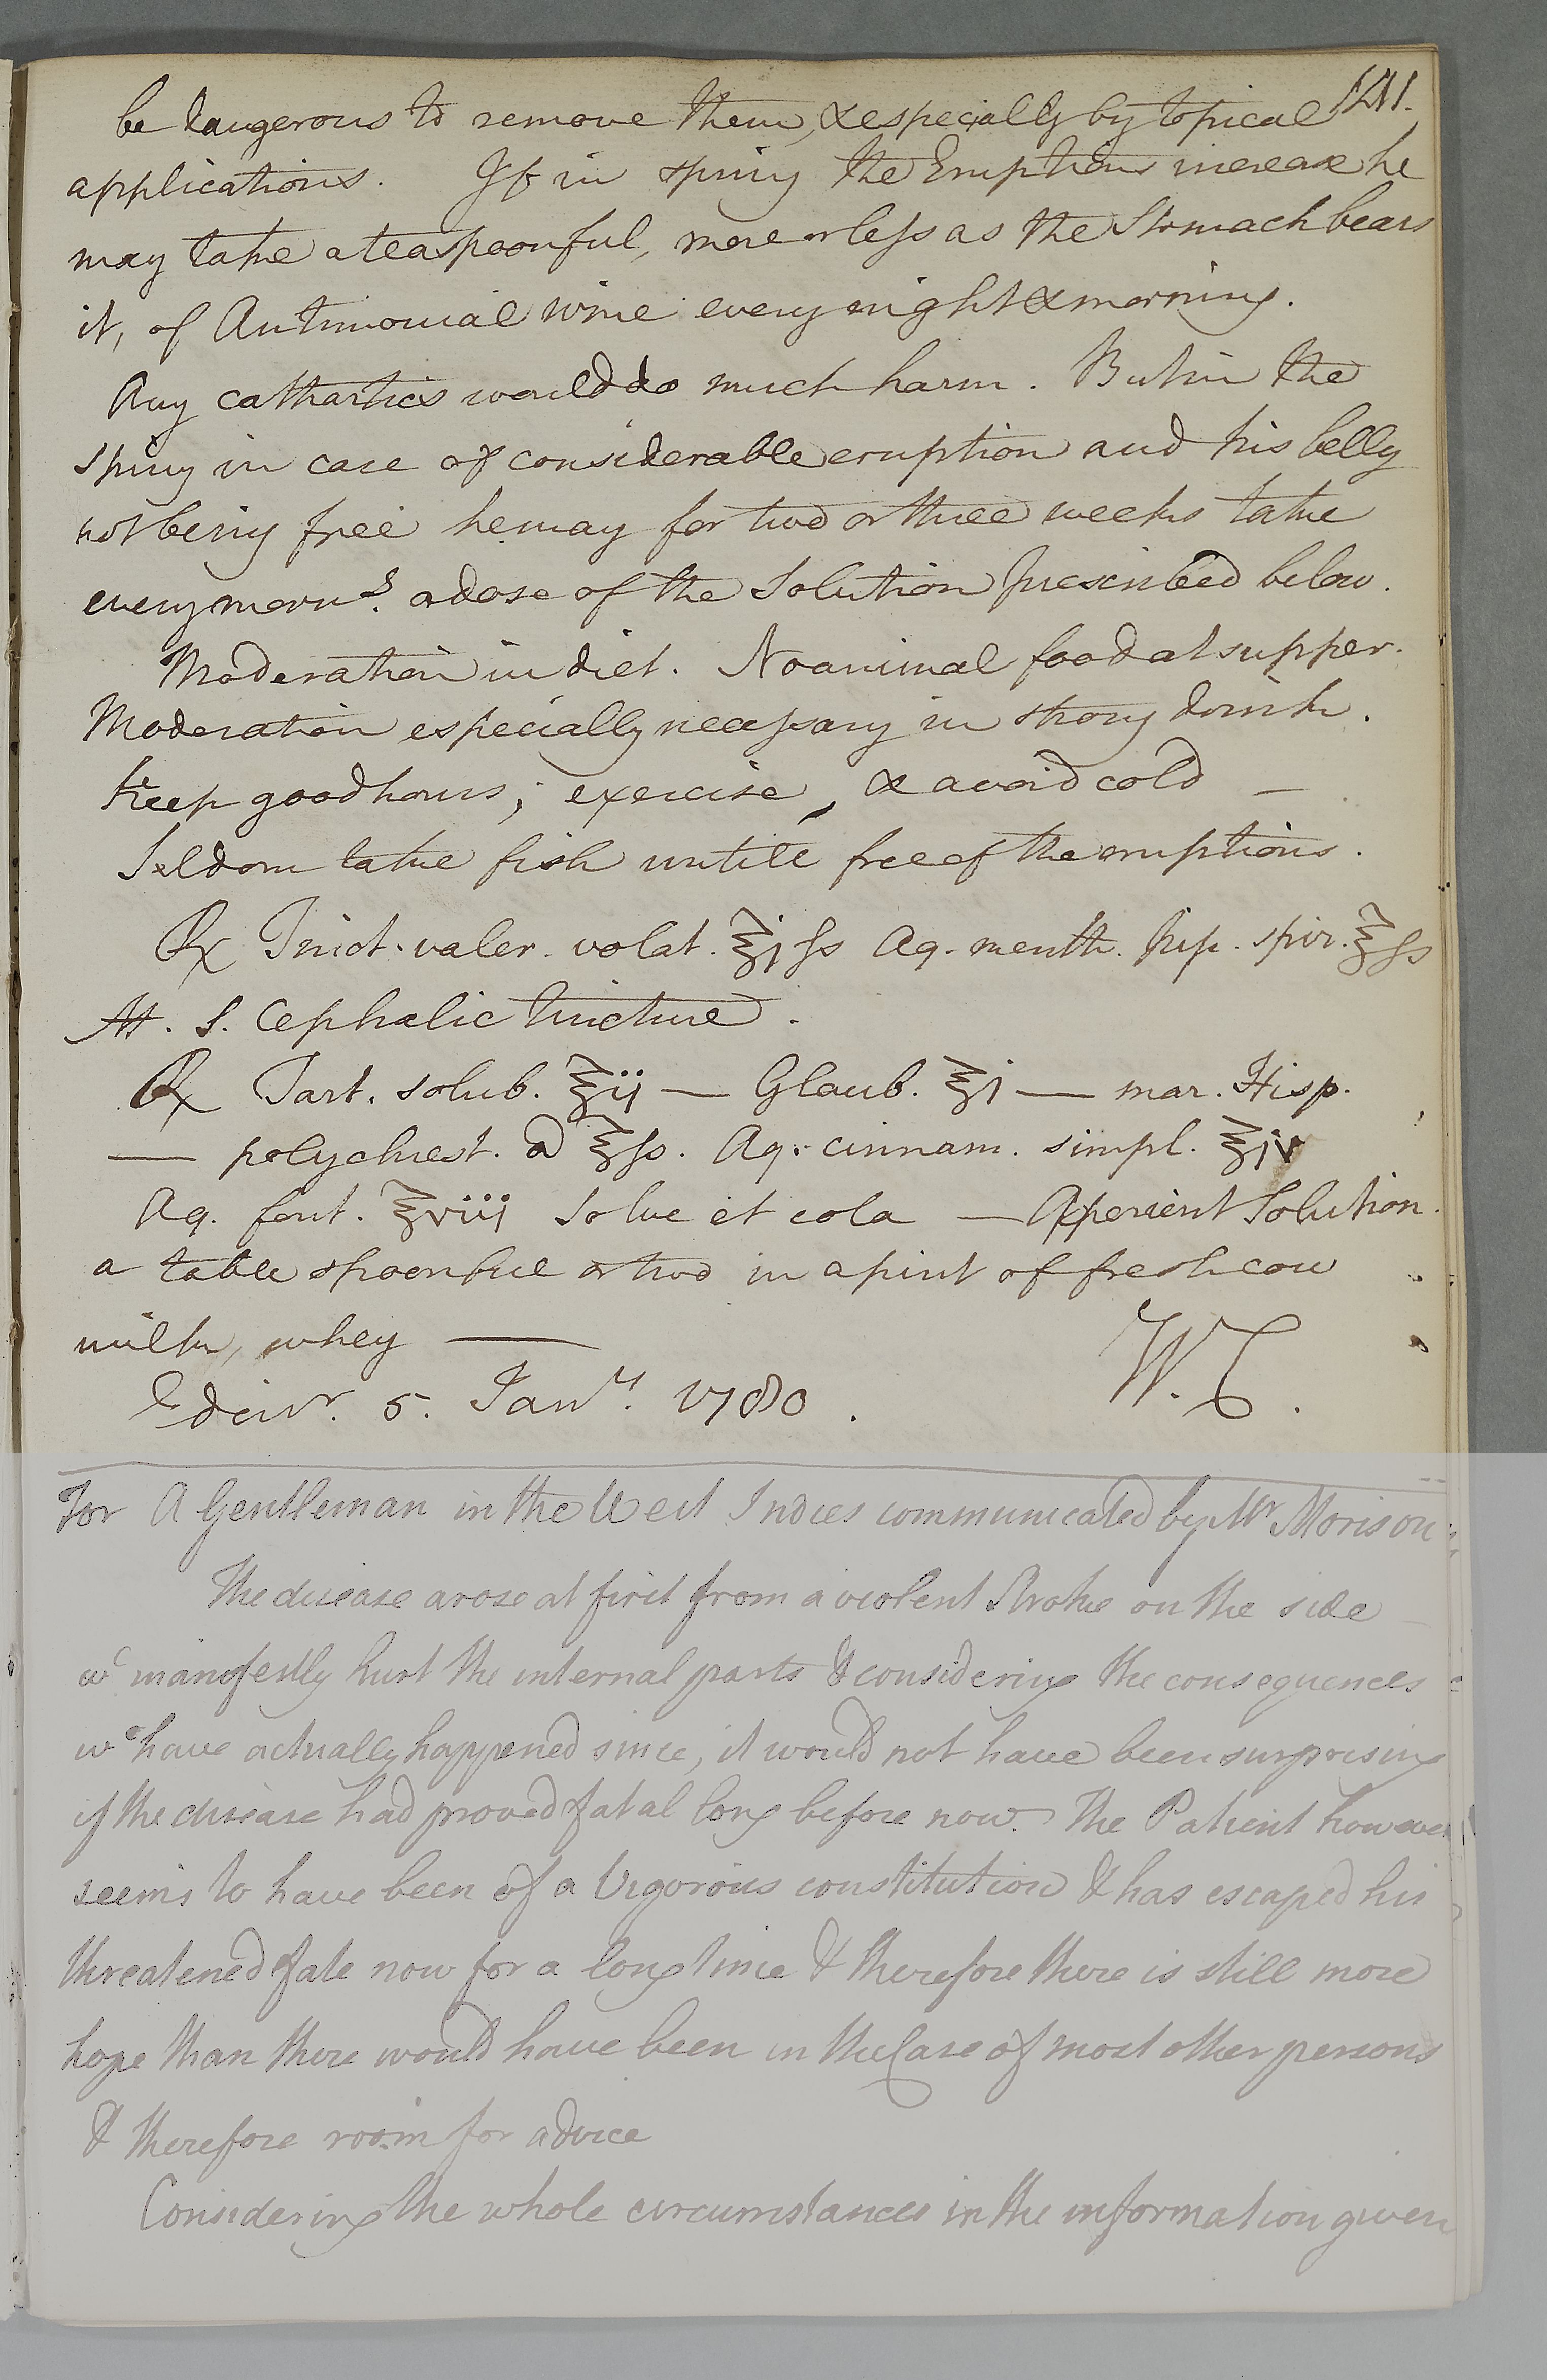 141.
be dangerous to remove them, & especially by topical
applications. If in spring the Eruptions increase he
may take a teaspoonful, more or less as the Stomach bears
it, of Antimonial wine every night & morning.
Any cathartics would do much harm. But in the
spring in case of considerable eruption and his belly
not being free he may for two or three weeks take
every morng. a dose of the Solution prescribed below.
Moderation in diet. No animal food at supper.
Moderation especially necessary in strong drink.
Keep good hours; exercise, & avoid cold —
Seldom take fish untill free of the eruptions.
℞ Tinct. valer. volat. ℥jſs Aq. menth. pip. spir. ℥ſs
M. S. Cephalic Tincture.
℞ Tart. solub. ℥ij — Glaub. ℥j — mar. Hisp.
— polychrest. a ℥ſs. Aq. cinnam. simpl. ℥iv
Aq. font. ℥viij Solve et cola — Aperient Solution.
a table spoonful or two in a pint of fresh cow
milk, whey —
Edinr. 5. Jany. 1780. W.C.
For A Gentleman in the West Indies communicated by Mr Morison
The disease arose at first from a violent Stroke on the side
wc manifestly hurt the internal parts & considering the consequences
wc have actually happened since, it would not have been surprising
if the disease had proved fatal long before now. The Patient however
seems to have been of a Vigorous constitution & has escaped his
threatened fate now for a long time & therefore there is still more
hope than there would have been in the Case of most other persons
& therefore room for advice
Considering the whole circumstances in the information given